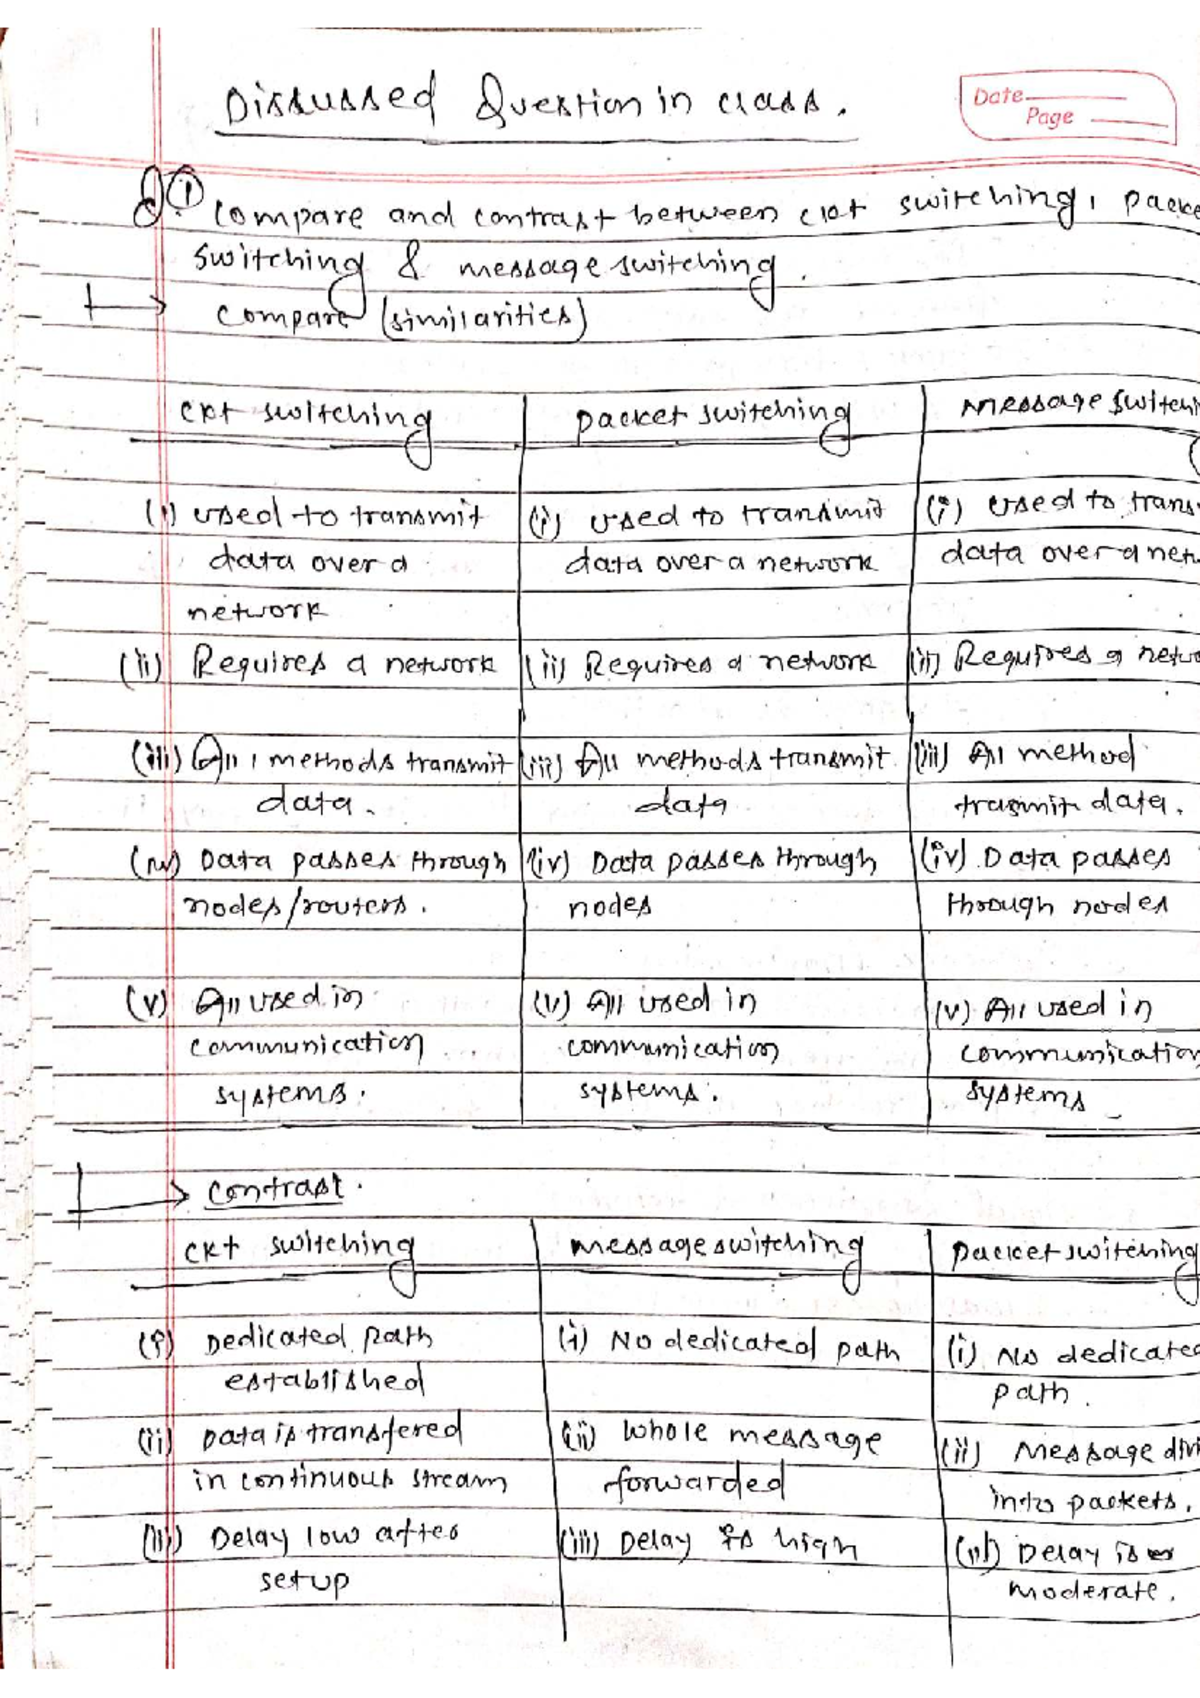 Discussed Question in class.
Date
Page
Q ① Compare and contrast between ckt switching, packe
switching & message switching.
Compare (similarities)
ckt switching packet switching Message switchi
(i) used to transmit (i) used to transmit (i) used to trans
data over a data over a network data over a netw
network
(ii) Requires a network (ii) Requires a network (ii) Requires a netwo
(iii) All methods transmit (iii) All methods transmit (iii) All method
data. data trasmit data.
(iv) Data passes through (iv) Data passes through (iv) Data passes
nodes/routers. nodes through nodes
(v) All used in (v) All used in (v) All used in
communication communication communication
systems. systems. systems
Contrast.
ckt switching message switching packet switching
(i) Dedicated path (i) No dedicated path (i) No dedicated
established path.
(ii) Data is transfered (ii) Whole message (ii) Message divi
in continuous stream forwarded into packets.
(iii) Delay low after (iii) Delay is high (iii) Delay is
setup moderate.